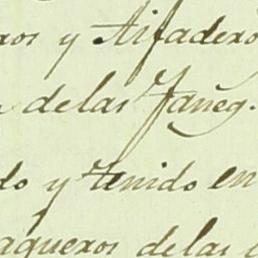 ros y Aifadero
de las Faneg.
do y tenido en
aqueros de las